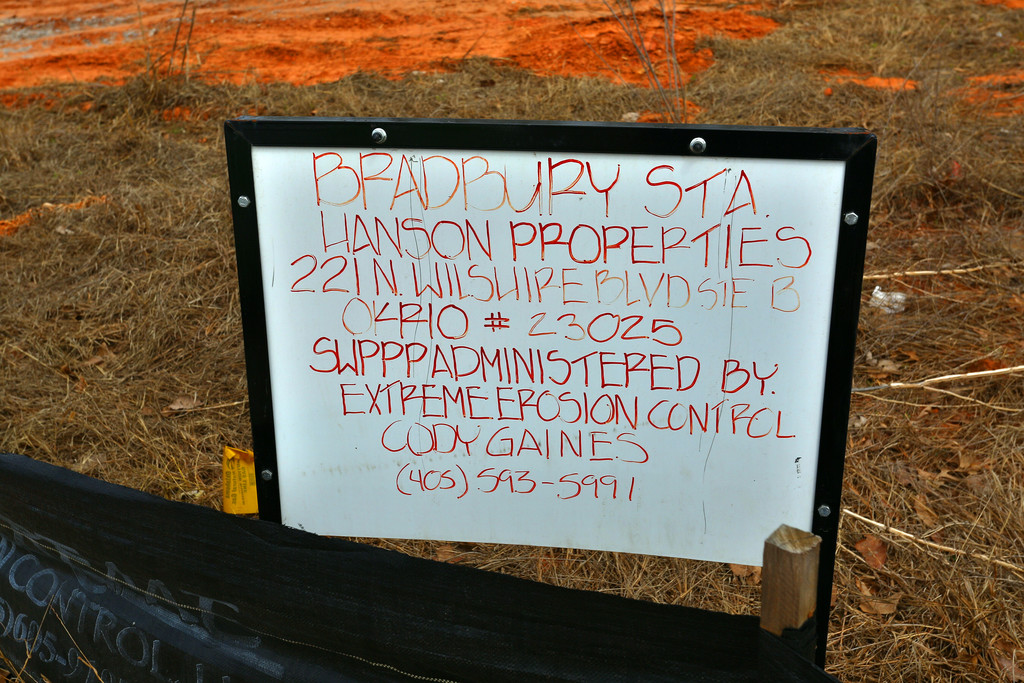 BRADBURY STA.
HANSON PROPERTIES
221 N. WILSHIRE BLVD STE B
OKR10 # 23025
SWPPP ADMINISTERED BY:
EXTREME EROSION CONTROL
CODY GAINES
(405) 593-5991
CONTROL